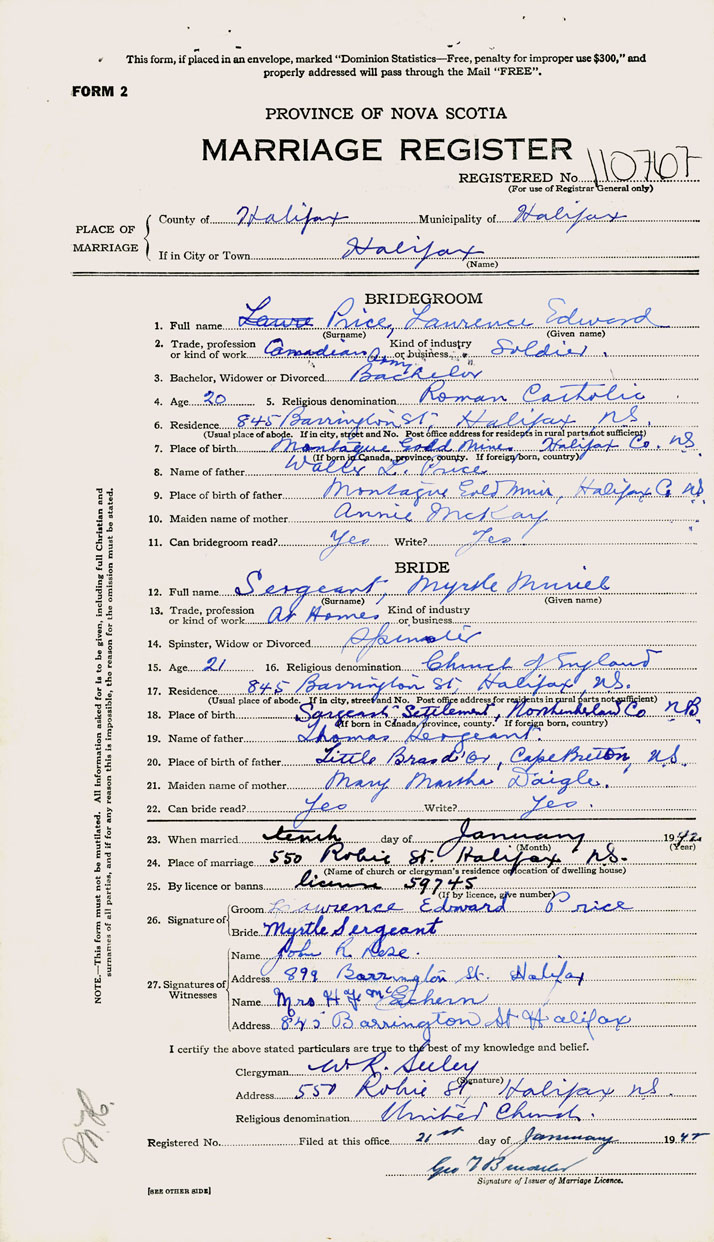 This form, if placed in an envelope, marked "Dominion Statistics—Free, penalty for improper use $300," and
properly addressed will pass through the Mail "FREE".
FORM 2
PROVINCE OF NOVA SCOTIA
MARRIAGE REGISTER
REGISTERED No. 110767
(For use of Registrar General only)
PLACE OF MARRIAGE
County of Halifax Municipality of Halifax
If in City or Town Halifax
(Name)
BRIDEGROOM
1. Full name Lawre Price, Lawrence Edward
(Surname) (Given name)
2. Trade, profession or kind of work Canadian Army Kind of industry or business Soldier.
3. Bachelor, Widower or Divorced Bachelor
4. Age 20 5. Religious denomination Roman Catholic
6. Residence 845 Barrington St, Halifax N.S.
(Usual place of abode. If in city, street and No. Post office address for residents in rural parts not sufficient)
7. Place of birth Montague Gold Mine Halifax Co. N.S
(If born in Canada, province, county. If foreign born, country)
8. Name of father Walter L. Price
9. Place of birth of father Montague Gold Mine, Halifax Co N.S
10. Maiden name of mother Annie McKay
11. Can bridegroom read? Yes Write? Yes
BRIDE
12. Full name Sergeant, Myrtle Muriel
(Surname) (Given name)
13. Trade, profession or kind of work At Home Kind of industry or business
14. Spinster, Widow or Divorced Spinster
15. Age 21 16. Religious denomination Church of England
17. Residence 845 Barrington St, Halifax N.S.
(Usual place of abode. If in city, street and No. Post office address for residents in rural parts not sufficient)
18. Place of birth Sargeant Settlement, Northumberland Co N B
(If born in Canada, province, county. If foreign born, country)
19. Name of father Thomas Sergeant
20. Place of birth of father Little Bras d'Or, Cape Breton, N.S.
21. Maiden name of mother Mary Martha Daigle.
22. Can bride read? Yes Write? Yes.
23. When married tenth day of January 1942
(Month) (Year)
24. Place of marriage 550 Robie St. Halifax N.S.
(Name of church or clergyman's residence or location of dwelling house)
25. By licence or banns license 59745
(If by licence, give number)
26. Signature of
Groom Lawrence Edward Price
Bride Myrtle Sergeant
27. Signatures of Witnesses
Name John R Rose.
Address 899 Barrington St. Halifax
Name Mrs H McEachern
Address 845 Barrington St Halifax
I certify the above stated particulars are true to the best of my knowledge and belief.
Clergyman W R. Seeley
(Signature)
Address 550 Robie St, Halifax N.S.
Religious denomination United Church.
Registered No. Filed at this office 21st day of January 1942
Signature of Issuer of Marriage Licence.
[SEE OTHER SIDE]
NOTE.—This form must not be mutilated. All information asked for is to be given, including full Christian and
surnames of all parties, and if for any reason this is impossible, the reason for the omission must be stated.